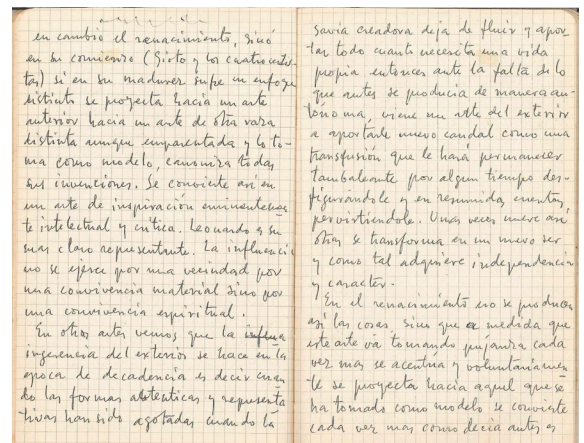 en cambio el renacimiento, sinó
en su comienzo (Giotto y los cuatrocentis
tas) si en su madurez sufre un enfoque
distinto se proyecta hacia un arte
anterior hacia un arte de otra raza
distinta aunque emparentada y lo to-
ma como modelo, canoniza todas
sus invenciones. Se convierte así en
un arte de inspiración eminentemen
te intelectual y crítica. Leonardo es su
mas claro representante. La influencia
no se ejerce por una vecindad por
una convivencia material sino por
una convivencia espiritual.
En otras artes vemos que la influen
ingerencia del exterior se hace en la
epoca de decadencia es decir cuan
do las formas autenticas y representa
tivas han sido agotadas cuando la
savia creadora deja de fluir y apor
tar todo cuanto necesita una vida
propia entonces ante la falta de lo
que antes se producia de manera au-
tónoma, viene un arte del exterior
a aportarle nuevo caudal como una
transfusión que le hará permanecer
tambaleante por algun tiempo des-
figurandole y en resumidas cuentas
pervirtiendole. Unas veces muere así
otras se transforma en un nuevo ser
y como tal adquiere independencia
y caracter.
En el renacimiento no se producen
así las cosas, sino que a medida que
este arte va tomando pujanza cada
vez mas se acentúa y voluntariamen
te se proyecta hacia aquel que se
ha tomado como modelo se convierte
cada vez mas como decia antes es